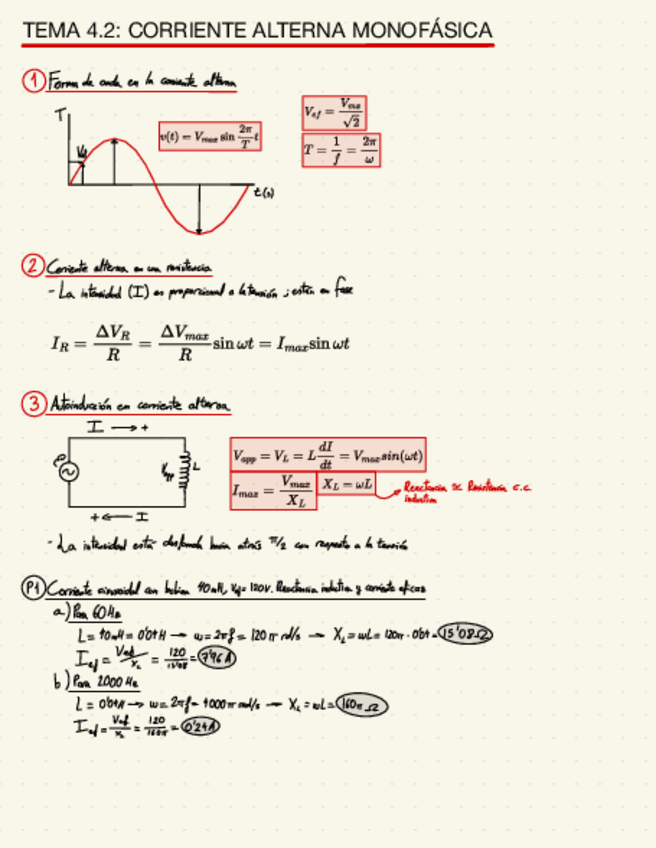 TEMA 4.2: CORRIENTE ALTERNA MONOFÁSICA
① Forma de onda en la corriente alterna
T
v(t) = V_max sin 2π/T t
V_ef = V_max/√2
T = 1/f = 2π/ω
t(s)
② Corriente alterna en una resistencia
- La intensidad (I) es proporcional a la tensión; están en fase
I_R = ΔV_R/R = ΔV_max/R sin ωt = I_max sin ωt
③ Autoinducción en corriente alterna
I → +
V_app L
+ ← I
V_app = V_L = L dI/dt = V_max sin(ωt)
I_max = V_max/X_L X_L = ωL
Reactancia ≈ Resistencia c.c.
inductiva
- La intensidad está desfasada hacia atrás π/2 con respecto a la tensión
P1 Corriente sinusoidal con bobina 40mH, Vef = 120V. Reactancia inductiva y corriente eficaz
a) Para 60Hz
L = 40mH = 0'04H → ω = 2πf = 120π rad/s → X_L = ωL = 120π · 0'04 = 15'08Ω
I_ef = V_ef/X_L = 120/15'08 = 7'96A
b) Para 2000Hz
L = 0'04H → ω = 2πf = 4000π rad/s → X_L = ωL = 160π Ω
I_ef = V_ef/X_L = 120/160π = 0'24A